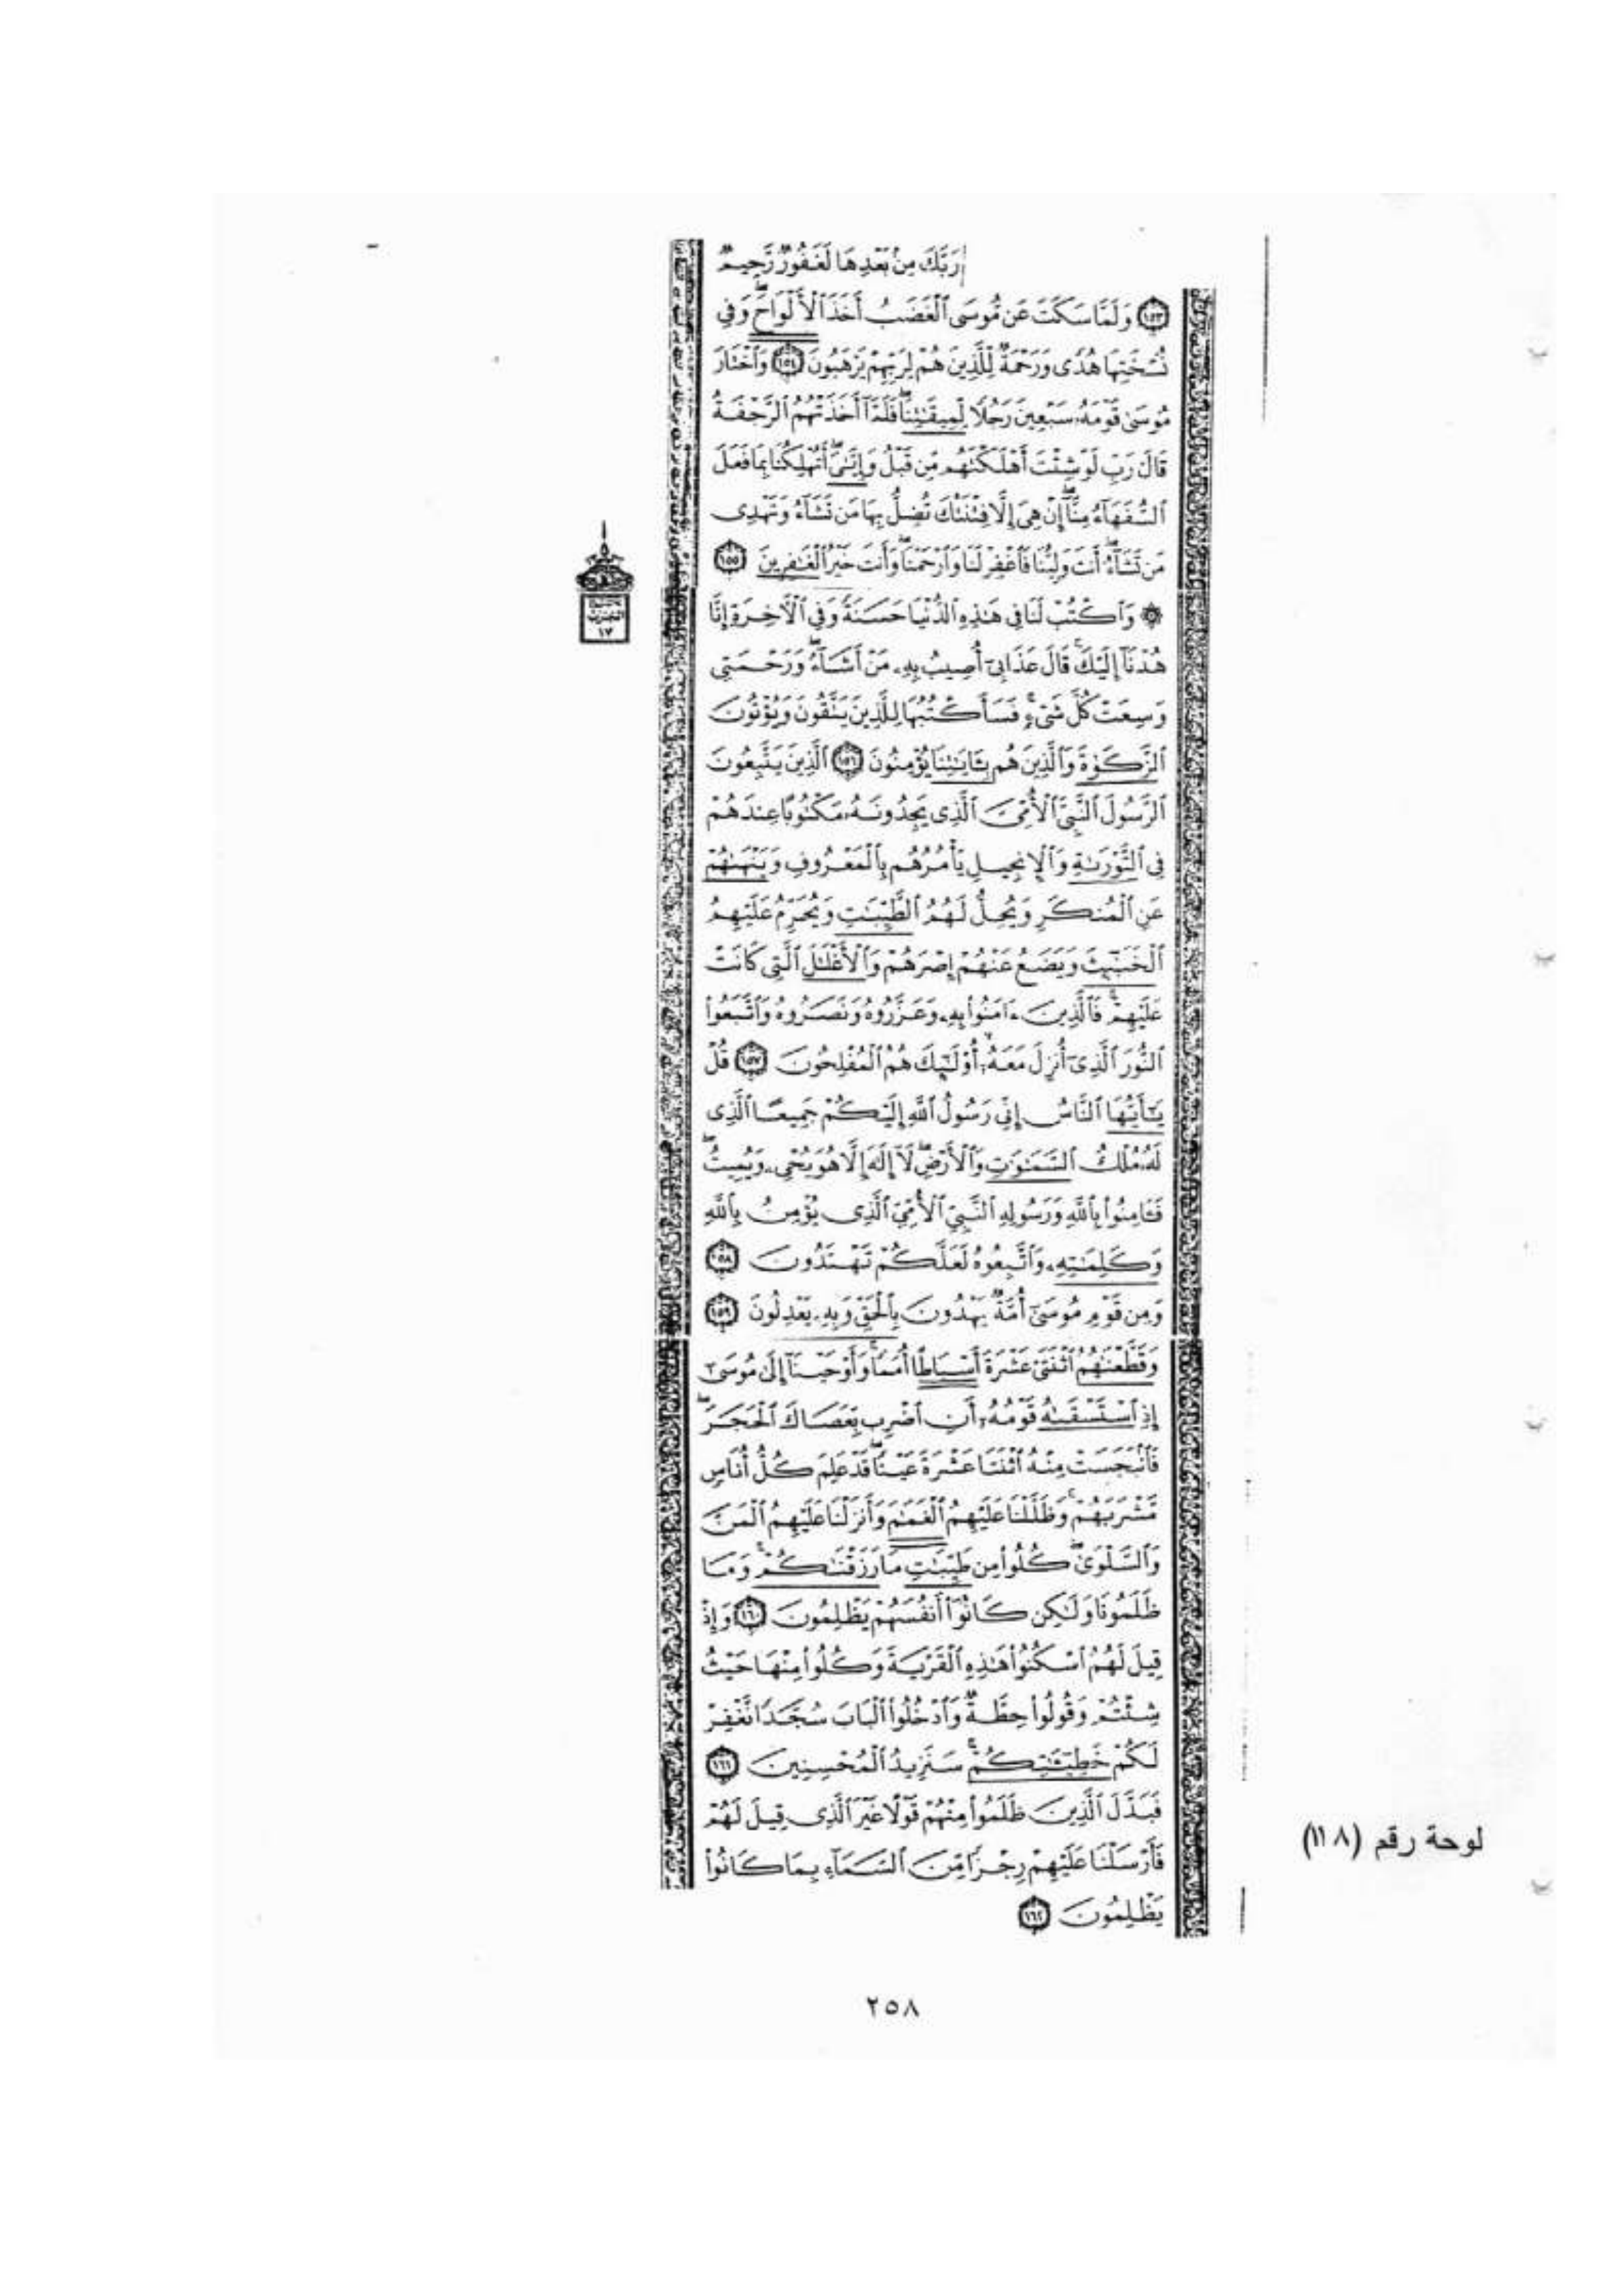 رَبَّكَ مِنۢ بَعْدِهَا لَغَفُورٌ رَّحِيمٌ
﴿١٥٣﴾ وَلَمَّا سَكَتَ عَن مُّوسَى ٱلْغَضَبُ أَخَذَ ٱلْأَلْوَاحَ ۖ وَفِى
نُسْخَتِهَا هُدًى وَرَحْمَةٌ لِّلَّذِينَ هُمْ لِرَبِّهِمْ يَرْهَبُونَ ﴿١٥٤﴾ وَٱخْتَارَ
مُوسَىٰ قَوْمَهُۥ سَبْعِينَ رَجُلًا لِّمِيقَـٰتِنَا ۖ فَلَمَّآ أَخَذَتْهُمُ ٱلرَّجْفَةُ
قَالَ رَبِّ لَوْ شِئْتَ أَهْلَكْتَهُم مِّن قَبْلُ وَإِيَّـٰىَ ۖ أَتُهْلِكُنَا بِمَا فَعَلَ
ٱلسُّفَهَآءُ مِنَّآ ۖ إِنْ هِىَ إِلَّا فِتْنَتُكَ تُضِلُّ بِهَا مَن تَشَآءُ وَتَهْدِى
مَن تَشَآءُ ۖ أَنتَ وَلِيُّنَا فَٱغْفِرْ لَنَا وَٱرْحَمْنَا ۖ وَأَنتَ خَيْرُ ٱلْغَـٰفِرِينَ ﴿١٥٥﴾
۞ وَٱكْتُبْ لَنَا فِى هَـٰذِهِ ٱلدُّنْيَا حَسَنَةً وَفِى ٱلْـَٔاخِرَةِ إِنَّا
هُدْنَآ إِلَيْكَ ۚ قَالَ عَذَابِىٓ أُصِيبُ بِهِۦ مَنْ أَشَآءُ ۖ وَرَحْمَتِى
وَسِعَتْ كُلَّ شَىْءٍ ۚ فَسَأَكْتُبُهَا لِلَّذِينَ يَتَّقُونَ وَيُؤْتُونَ
ٱلزَّكَوٰةَ وَٱلَّذِينَ هُم بِـَٔايَـٰتِنَا يُؤْمِنُونَ ﴿١٥٦﴾ ٱلَّذِينَ يَتَّبِعُونَ
ٱلرَّسُولَ ٱلنَّبِىَّ ٱلْأُمِّىَّ ٱلَّذِى يَجِدُونَهُۥ مَكْتُوبًا عِندَهُمْ
فِى ٱلتَّوْرَىٰةِ وَٱلْإِنجِيلِ يَأْمُرُهُم بِٱلْمَعْرُوفِ وَيَنْهَىٰهُمْ
عَنِ ٱلْمُنكَرِ وَيُحِلُّ لَهُمُ ٱلطَّيِّبَـٰتِ وَيُحَرِّمُ عَلَيْهِمُ
ٱلْخَبَـٰٓئِثَ وَيَضَعُ عَنْهُمْ إِصْرَهُمْ وَٱلْأَغْلَـٰلَ ٱلَّتِى كَانَتْ
عَلَيْهِمْ ۚ فَٱلَّذِينَ ءَامَنُوا۟ بِهِۦ وَعَزَّرُوهُ وَنَصَرُوهُ وَٱتَّبَعُوا۟
ٱلنُّورَ ٱلَّذِىٓ أُنزِلَ مَعَهُۥٓ ۙ أُو۟لَـٰٓئِكَ هُمُ ٱلْمُفْلِحُونَ ﴿١٥٧﴾ قُلْ
يَـٰٓأَيُّهَا ٱلنَّاسُ إِنِّى رَسُولُ ٱللَّهِ إِلَيْكُمْ جَمِيعًا ٱلَّذِى
لَهُۥ مُلْكُ ٱلسَّمَـٰوَٰتِ وَٱلْأَرْضِ ۖ لَآ إِلَـٰهَ إِلَّا هُوَ يُحْىِۦ وَيُمِيتُ ۖ
فَـَٔامِنُوا۟ بِٱللَّهِ وَرَسُولِهِ ٱلنَّبِىِّ ٱلْأُمِّىِّ ٱلَّذِى يُؤْمِنُ بِٱللَّهِ
وَكَلِمَـٰتِهِۦ وَٱتَّبِعُوهُ لَعَلَّكُمْ تَهْتَدُونَ ﴿١٥٨﴾
وَمِن قَوْمِ مُوسَىٰٓ أُمَّةٌ يَهْدُونَ بِٱلْحَقِّ وَبِهِۦ يَعْدِلُونَ ﴿١٥٩﴾
وَقَطَّعْنَـٰهُمُ ٱثْنَتَىْ عَشْرَةَ أَسْبَاطًا أُمَمًا ۚ وَأَوْحَيْنَآ إِلَىٰ مُوسَىٰٓ
إِذِ ٱسْتَسْقَىٰهُ قَوْمُهُۥٓ أَنِ ٱضْرِب بِّعَصَاكَ ٱلْحَجَرَ ۖ
فَٱنۢبَجَسَتْ مِنْهُ ٱثْنَتَا عَشْرَةَ عَيْنًا ۖ قَدْ عَلِمَ كُلُّ أُنَاسٍ
مَّشْرَبَهُمْ ۚ وَظَلَّلْنَا عَلَيْهِمُ ٱلْغَمَـٰمَ وَأَنزَلْنَا عَلَيْهِمُ ٱلْمَنَّ
وَٱلسَّلْوَىٰ ۖ كُلُوا۟ مِن طَيِّبَـٰتِ مَا رَزَقْنَـٰكُمْ ۚ وَمَا
ظَلَمُونَا وَلَـٰكِن كَانُوٓا۟ أَنفُسَهُمْ يَظْلِمُونَ ﴿١٦٠﴾ وَإِذْ
قِيلَ لَهُمُ ٱسْكُنُوا۟ هَـٰذِهِ ٱلْقَرْيَةَ وَكُلُوا۟ مِنْهَا حَيْثُ
شِئْتُمْ وَقُولُوا۟ حِطَّةٌ وَٱدْخُلُوا۟ ٱلْبَابَ سُجَّدًا نَّغْفِرْ
لَكُمْ خَطِيٓـَٔـٰتِكُمْ ۚ سَنَزِيدُ ٱلْمُحْسِنِينَ ﴿١٦١﴾
فَبَدَّلَ ٱلَّذِينَ ظَلَمُوا۟ مِنْهُمْ قَوْلًا غَيْرَ ٱلَّذِى قِيلَ لَهُمْ
فَأَرْسَلْنَا عَلَيْهِمْ رِجْزًا مِّنَ ٱلسَّمَآءِ بِمَا كَانُوا۟
يَظْلِمُونَ ﴿١٦٢﴾
١٧
لوحة رقم (١١٨)
٢٥٨